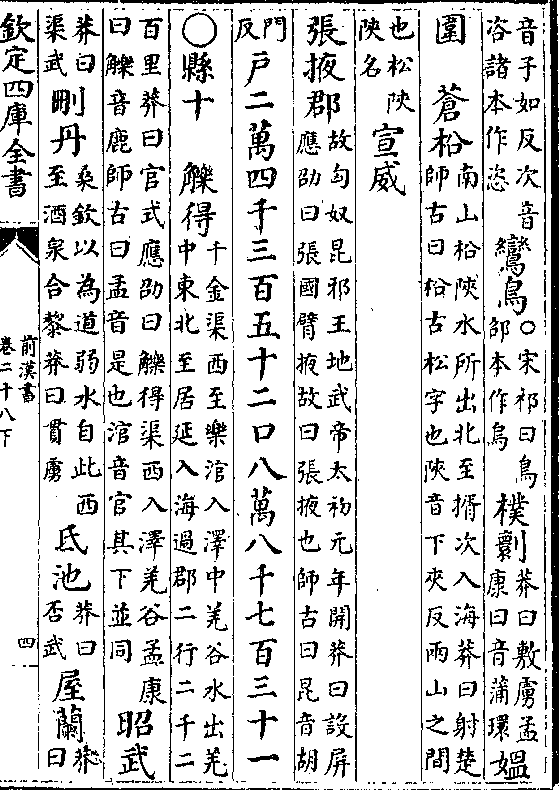 音子如反次音咨諸本作恣鸞鳥○宋祁曰鳥邵本作烏樸剽莽曰敷虜孟康曰音蒲環媼
圍 蒼柗南山柗陜水所出北至揟次入海莽曰射楚師古曰柗古松字也陜音下夾反兩山之間
也松陜陜名宣威
張掖郡故匈奴昆邪王地武帝太初元年開莽曰設屏應劭曰張國臂掖故曰張掖也師古曰昆音胡
門反戸二萬四千三百五十二口八萬八千七百三十一
○縣十 觻得千金渠西至樂涫入澤中羌谷水出羌中東北至居延入海過郡二行二千二
百里莽曰官式應劭曰觻得渠西入澤羌谷孟康曰觻音鹿師古曰孟音是也涫音官其下並同昭武
莽曰渠武刪丹桑欽以為道弱水自此西至酒泉合黎莽曰貫虜氐池莽曰否武屋蘭莽曰
欽定四庫全書
前漢書
卷二十八下
四